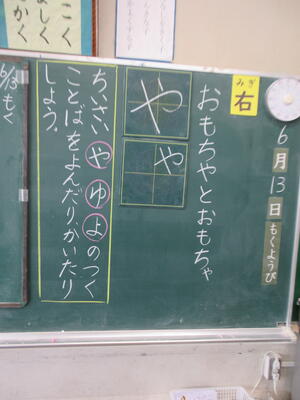 みぎ
右
6月13日
もくようび
おもちやとおもちゃ
や
ゃ
ちいさい ゃ ゅ ょ のつく
ことばをよんだりかいたり
しよう。
6/13もく
こく
よしく
かく